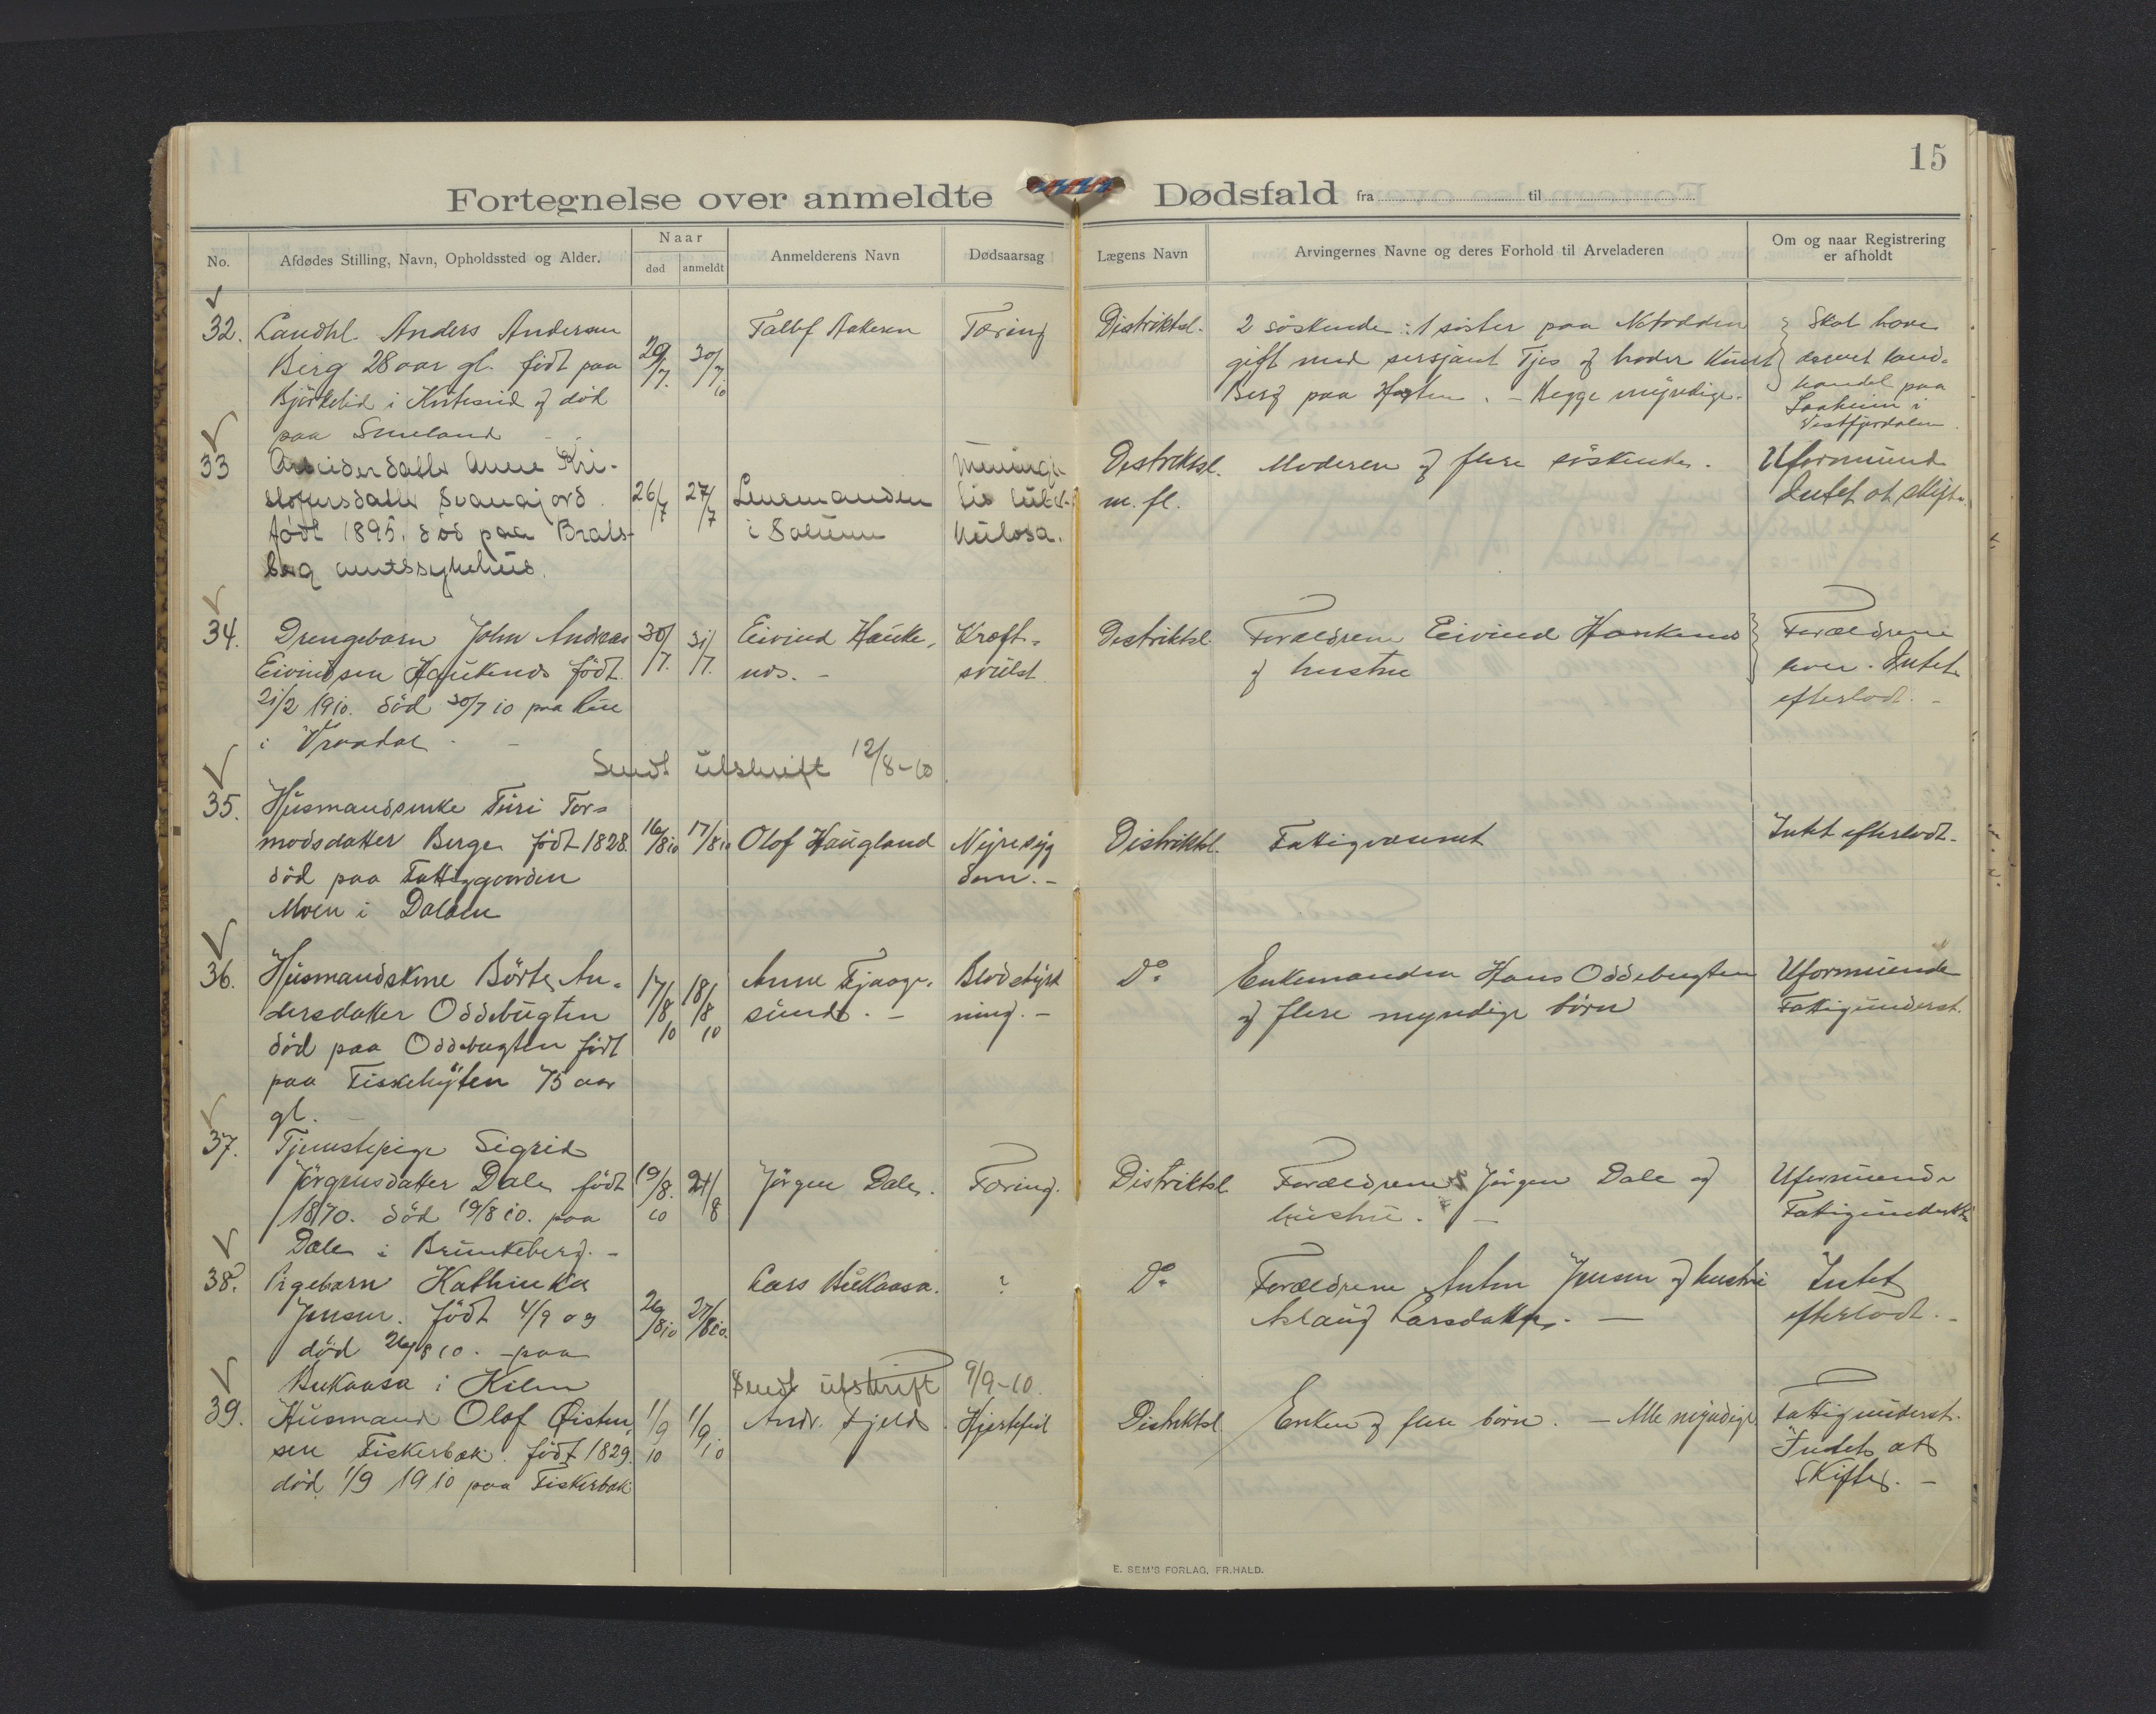 15
Fortegnelse over anmeldte Dødsfald fra til
No.
Afdødes Stilling, Navn, Opholdssted og Alder.
Naar
død anmeldt
Anmelderens Navn
Dødsaarsag
Lægens Navn
Arvingernes Navne og deres Forhold til Arveladeren
Om og naar Registrering
er afholdt
32. Landhl. Anders Andersen
Berg 28 aar gl. født paa
i og død
paa
29/7. 30/7 10
Tæring
Distriktsl.
2 söskende: 1 sister paa Notodden
gift med sersjant og broder Knut
Berg paa Horten. - Begge myndige.
Skal have
drevet land-
handel paa
Saaheim i
Vestfjordalen
33 Arbeiderdatter Anne Kri-
stoffersdatter Svanajord.
født 1895. död paa Brats-
berg amtssykehus.
26/7 27/7
Lensmanden
i Solum
Meningi-
tis tuber-
kulosa.
Distriktsl.
m. fl.
Moderen og flere söskende.
Uformuend
Intet at skifte
34. Drengebarn John Andreas
Eivindsen Haukenes født
21/2 1910. död 30/7 10 paa
i Vraadal
30/7. 31/7.
Eivind Hauke-
nes. -
Kræft-
svulst
Distriktsl.
Forældrene Eivind Haukenes
og hustru
Forældrene
lever. Intet
efterladt. -
Sendt utskrift 12/8-10
35. Husmandsenke Turi Tor-
modsdatter Berge født 1828.
död paa Fattiggaarden
Moen i Dalen
16/8 10 17/8 10
Olof Haugland
Nyresyg
dom. -
Distriktsl.
Fattigvæsenet
Intet efterladt.
36. Husmandskone Börte An-
dersdatter Oddebugten
död paa Oddebugten født
paa 75 aar
gl.
17/8 10 18/8 10
Anne Fjaage-
sund. -
Blodstyrt
ning. -
Do
Enkemanden Hans Oddebugten
og flere myndige börn
Uformuende
Fattigunderst.
37. Tjenestepige Sigrid
Jörgensdatter Dale født
1870. död 19/8 10. paa
Dale i Brunkeberg. -
19/8. 10 21/8
Jörgen Dale.
Tæring.
Distriktsl.
Forældrene Jörgen Dale og
hustru. -
Uformuende
Fattigunderst.
38. Pigebarn Kathinka
Jensen. født 4/9 og
död 26/8 10. - paa
Bukaasa i Kilen
26/8 10 27/8 10.
Lars Bukaasa.
?
Do
Forældrene Anton Jensen og hustru
Aslaug Larsdatter. -
Intet
efterladt. -
Sendt utskrift 9/9-10.
39. Husmand Olof Öisten
sen Fiskerbak. født 1829.
död 1/9 1910 paa Fiskerbak
1/9 10 1/9 10
Andr. Fjeld.
Hjertefeil
Distriktsl.
Enken og flere börn. - Alle myndige
Fattigunderst.
Intet at
skifte. -
E. SEM'S FORLAG, FR.HALD.